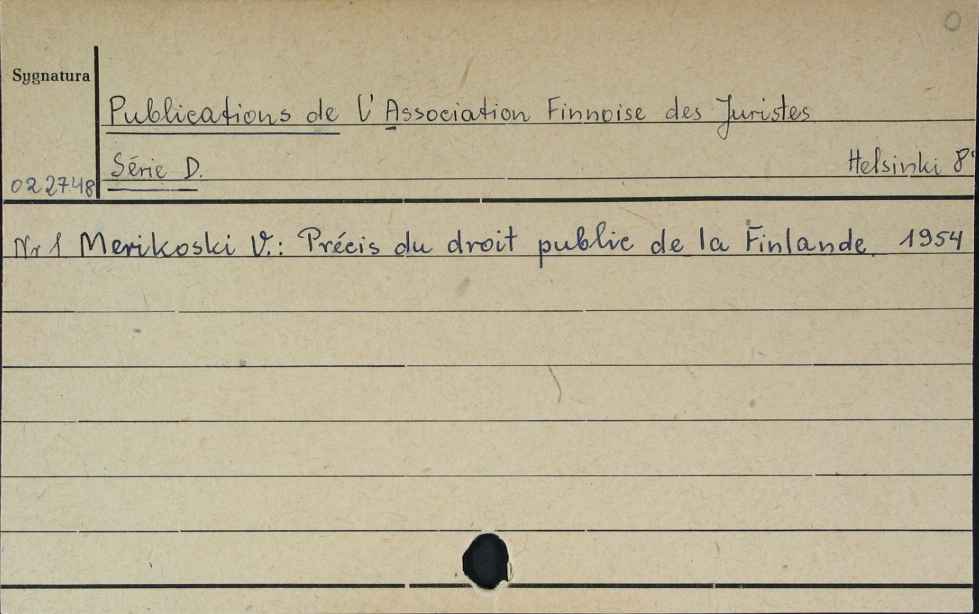 O
Sygnatura
Publications de l'Association Finnoise des Juristes
Série D.
Helsinki 8°
022748
Nr 1 Merikoski V.: Précis du droit public de la Finlande. 1954